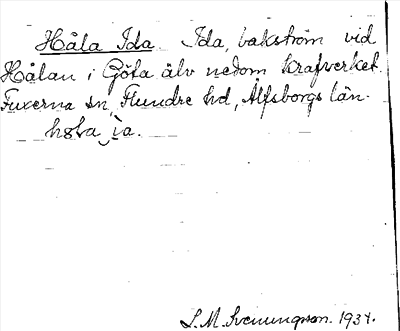 Håla Ida Ida, bakström vid
Hålan i Göta älv nedom Krafverket.
Fuxerna sn, Flundre hd, Älfsborgs län.
ìa.
S. M. Svenungsson. 1934.